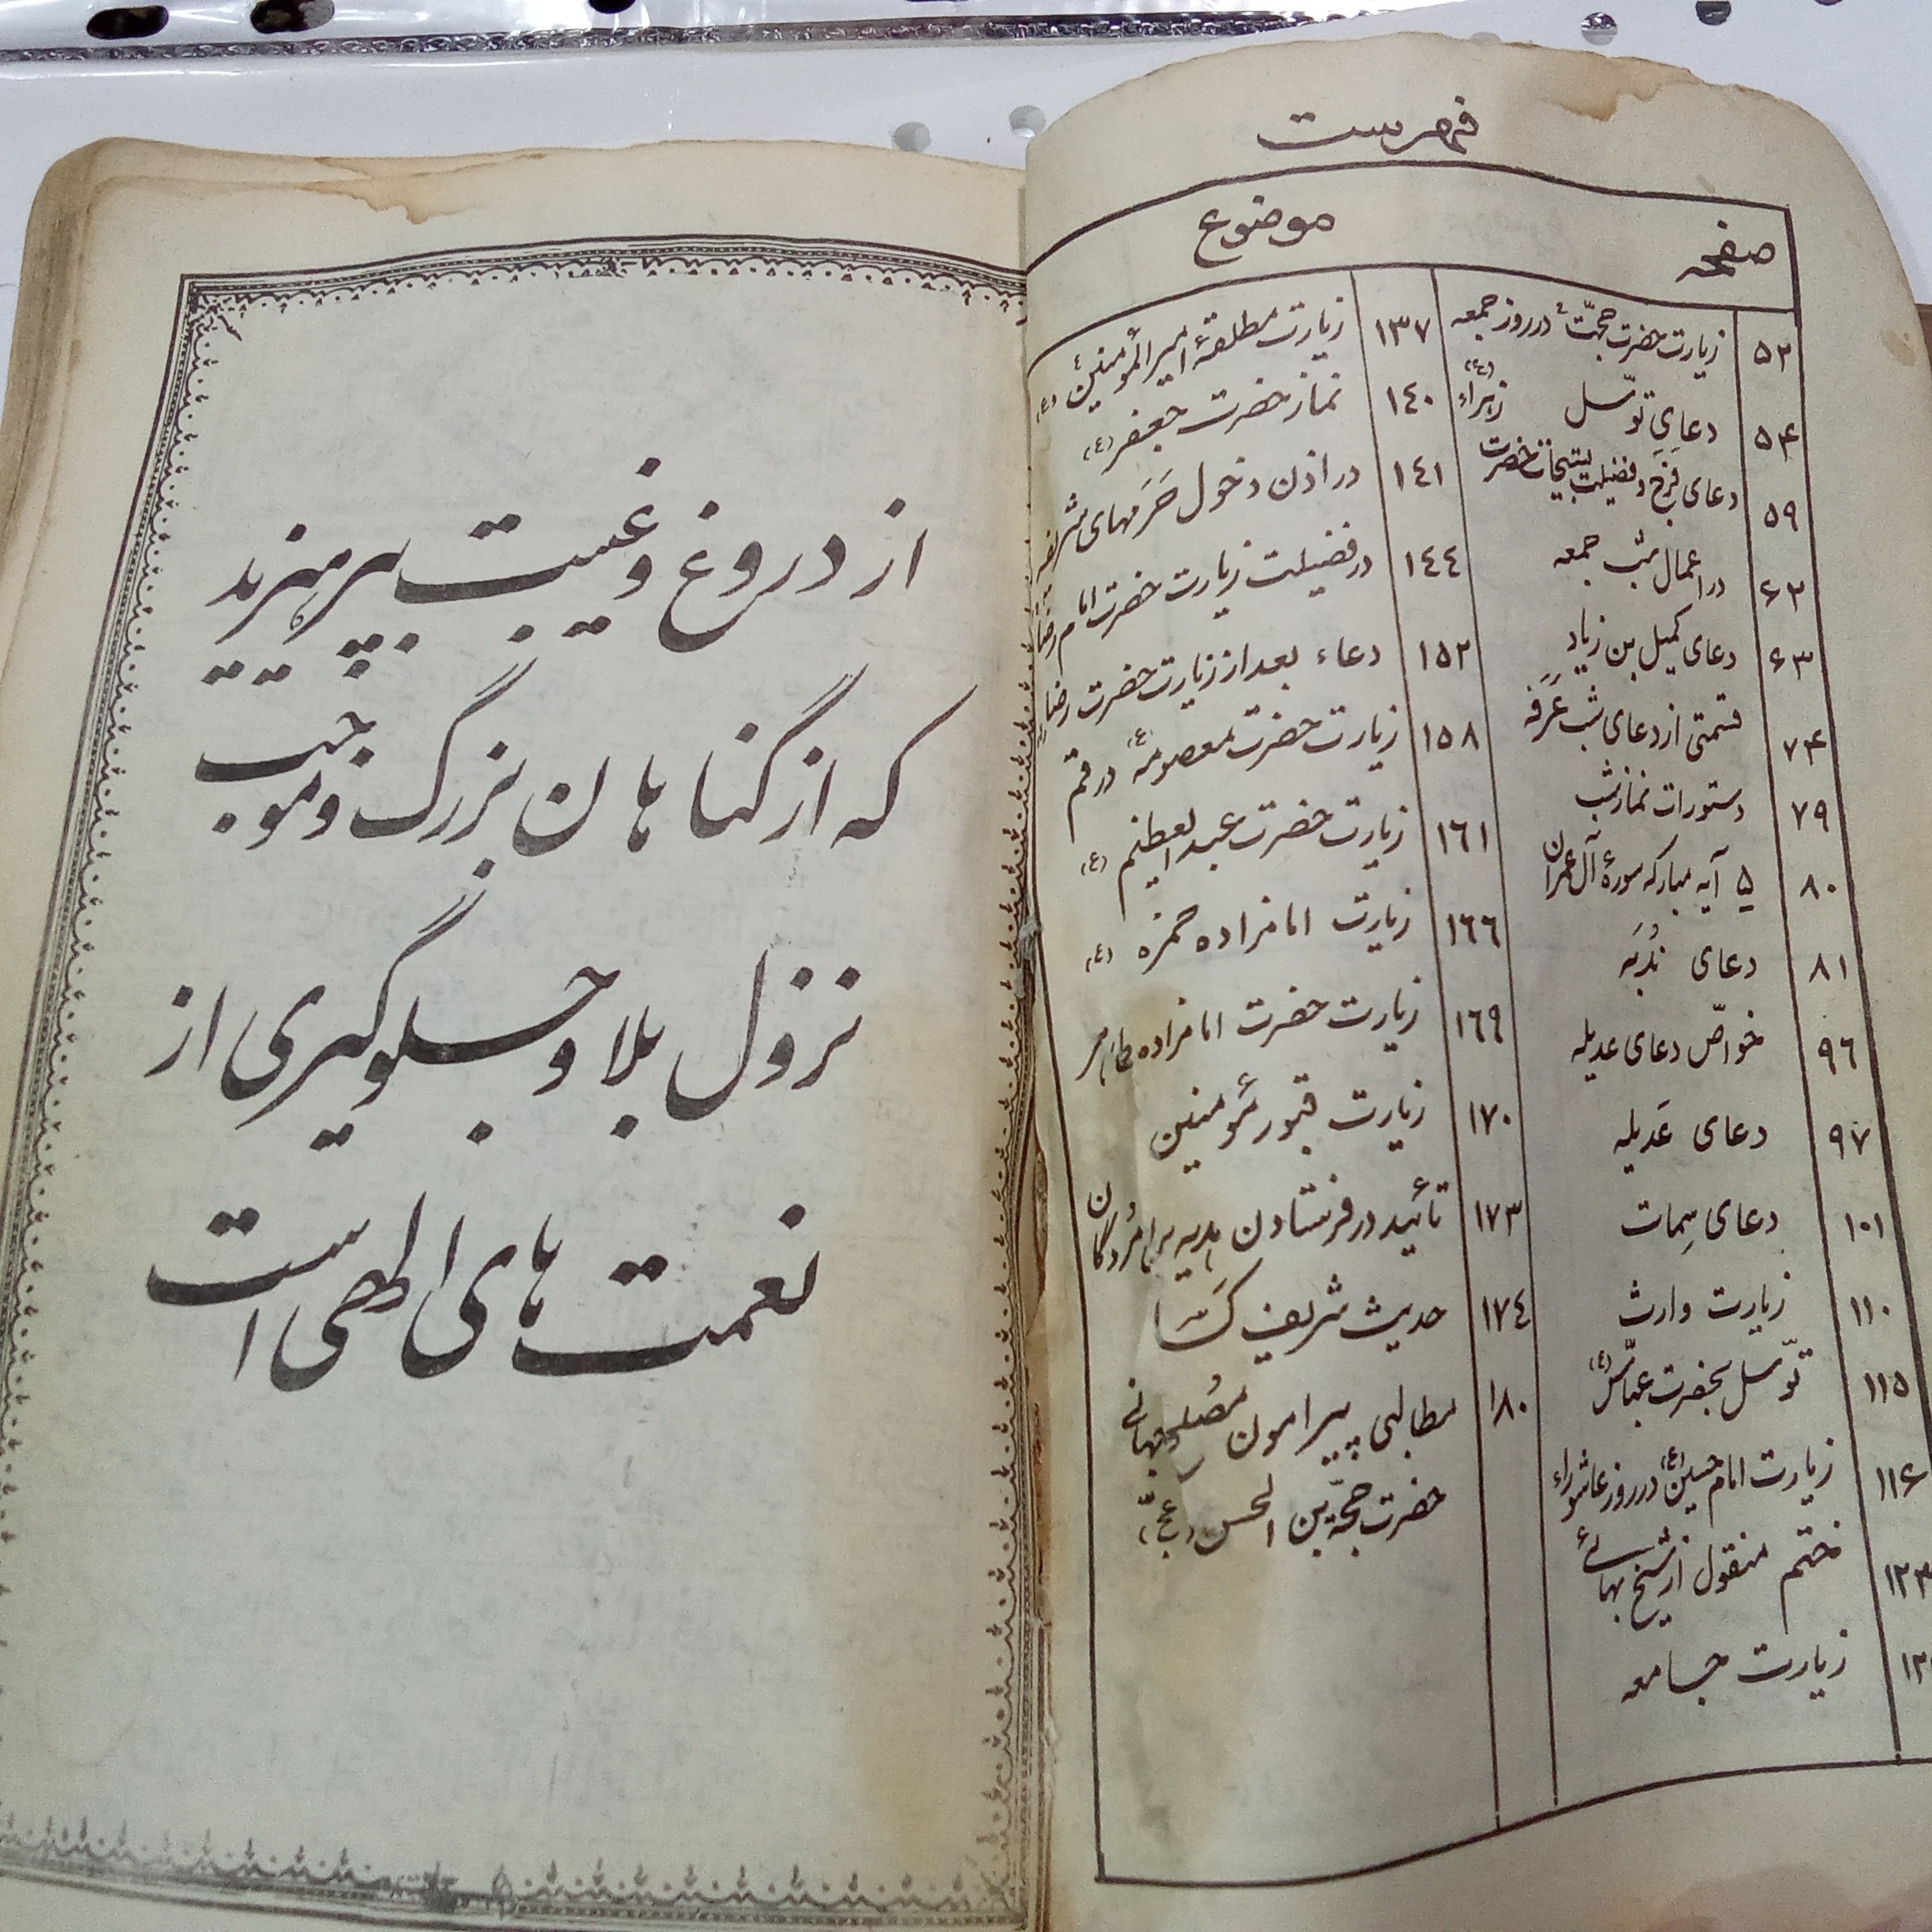 فهرست
صفحه
موضوع
۵۲ زیارت حضرت حجّت ع در روز جمعه
۵۴ دعایِ توسّل
۵۹ دعای فَرَج و فضیلت تسبیحات حضرت زهراء (ع)
۶۲ در اعمال شب جمعه
۶۳ دعای کمیل بن زیاد
۷۴ قسمتی از دعای شب عَرَفه
۷۹ دستورات نماز شب
۸۰ ۵ آیه مبارکه سورۀ آل عمران
۸۱ دعای نُدبَه
۹٦ خواصّ دعای عدیله
۹۷ دعای عَدیله
۱۰۱ دعای سِمات
۱۱۰ زیارت وارث
۱۱۵ توّسل بحضرت عبّاس (ع)
۱۱۶ زیارت امام حسین (ع) در روز عاشوراء
ختم منقول از شیخ بهائی
زیارت جامعه
۱۳۷ زیارت مطلقۀ امیرالمؤمنین (ع)
۱٤۰ نماز حضرت جعفر (ع)
۱٤۱ در اذن دخول حَرَمهای شریفه
۱٤٤ در فضیلت زیارت حضرت امام رضا
۱۵۲ دعاء بعد از زیارت حضرت رضا
۱۵۸ زیارت حضرت معصومه (ع) در قم
۱٦۱ زیارت حضرت عبدالعظیم (ع)
۱٦٦ زیارت امامزاده حمزه (ع)
۱٦۹ زیارت حضرت امامزاده طاهر
۱۷۰ زیارت قبور مؤمنین
۱۷۳ تأئید در فرستادن هدیه برای مُردگان
۱۷٤ حدیث شریف کَساء
۱۸۰ مطالبی پیرامون مُصلح جهانی
حضرت حجّة بن الحسن (عجّ)
از دروغ و غیبت بپرهیزید
که از گناهان بزرگ و موجب
نزول بلا و جلوگیری از
نعمت های الهی است